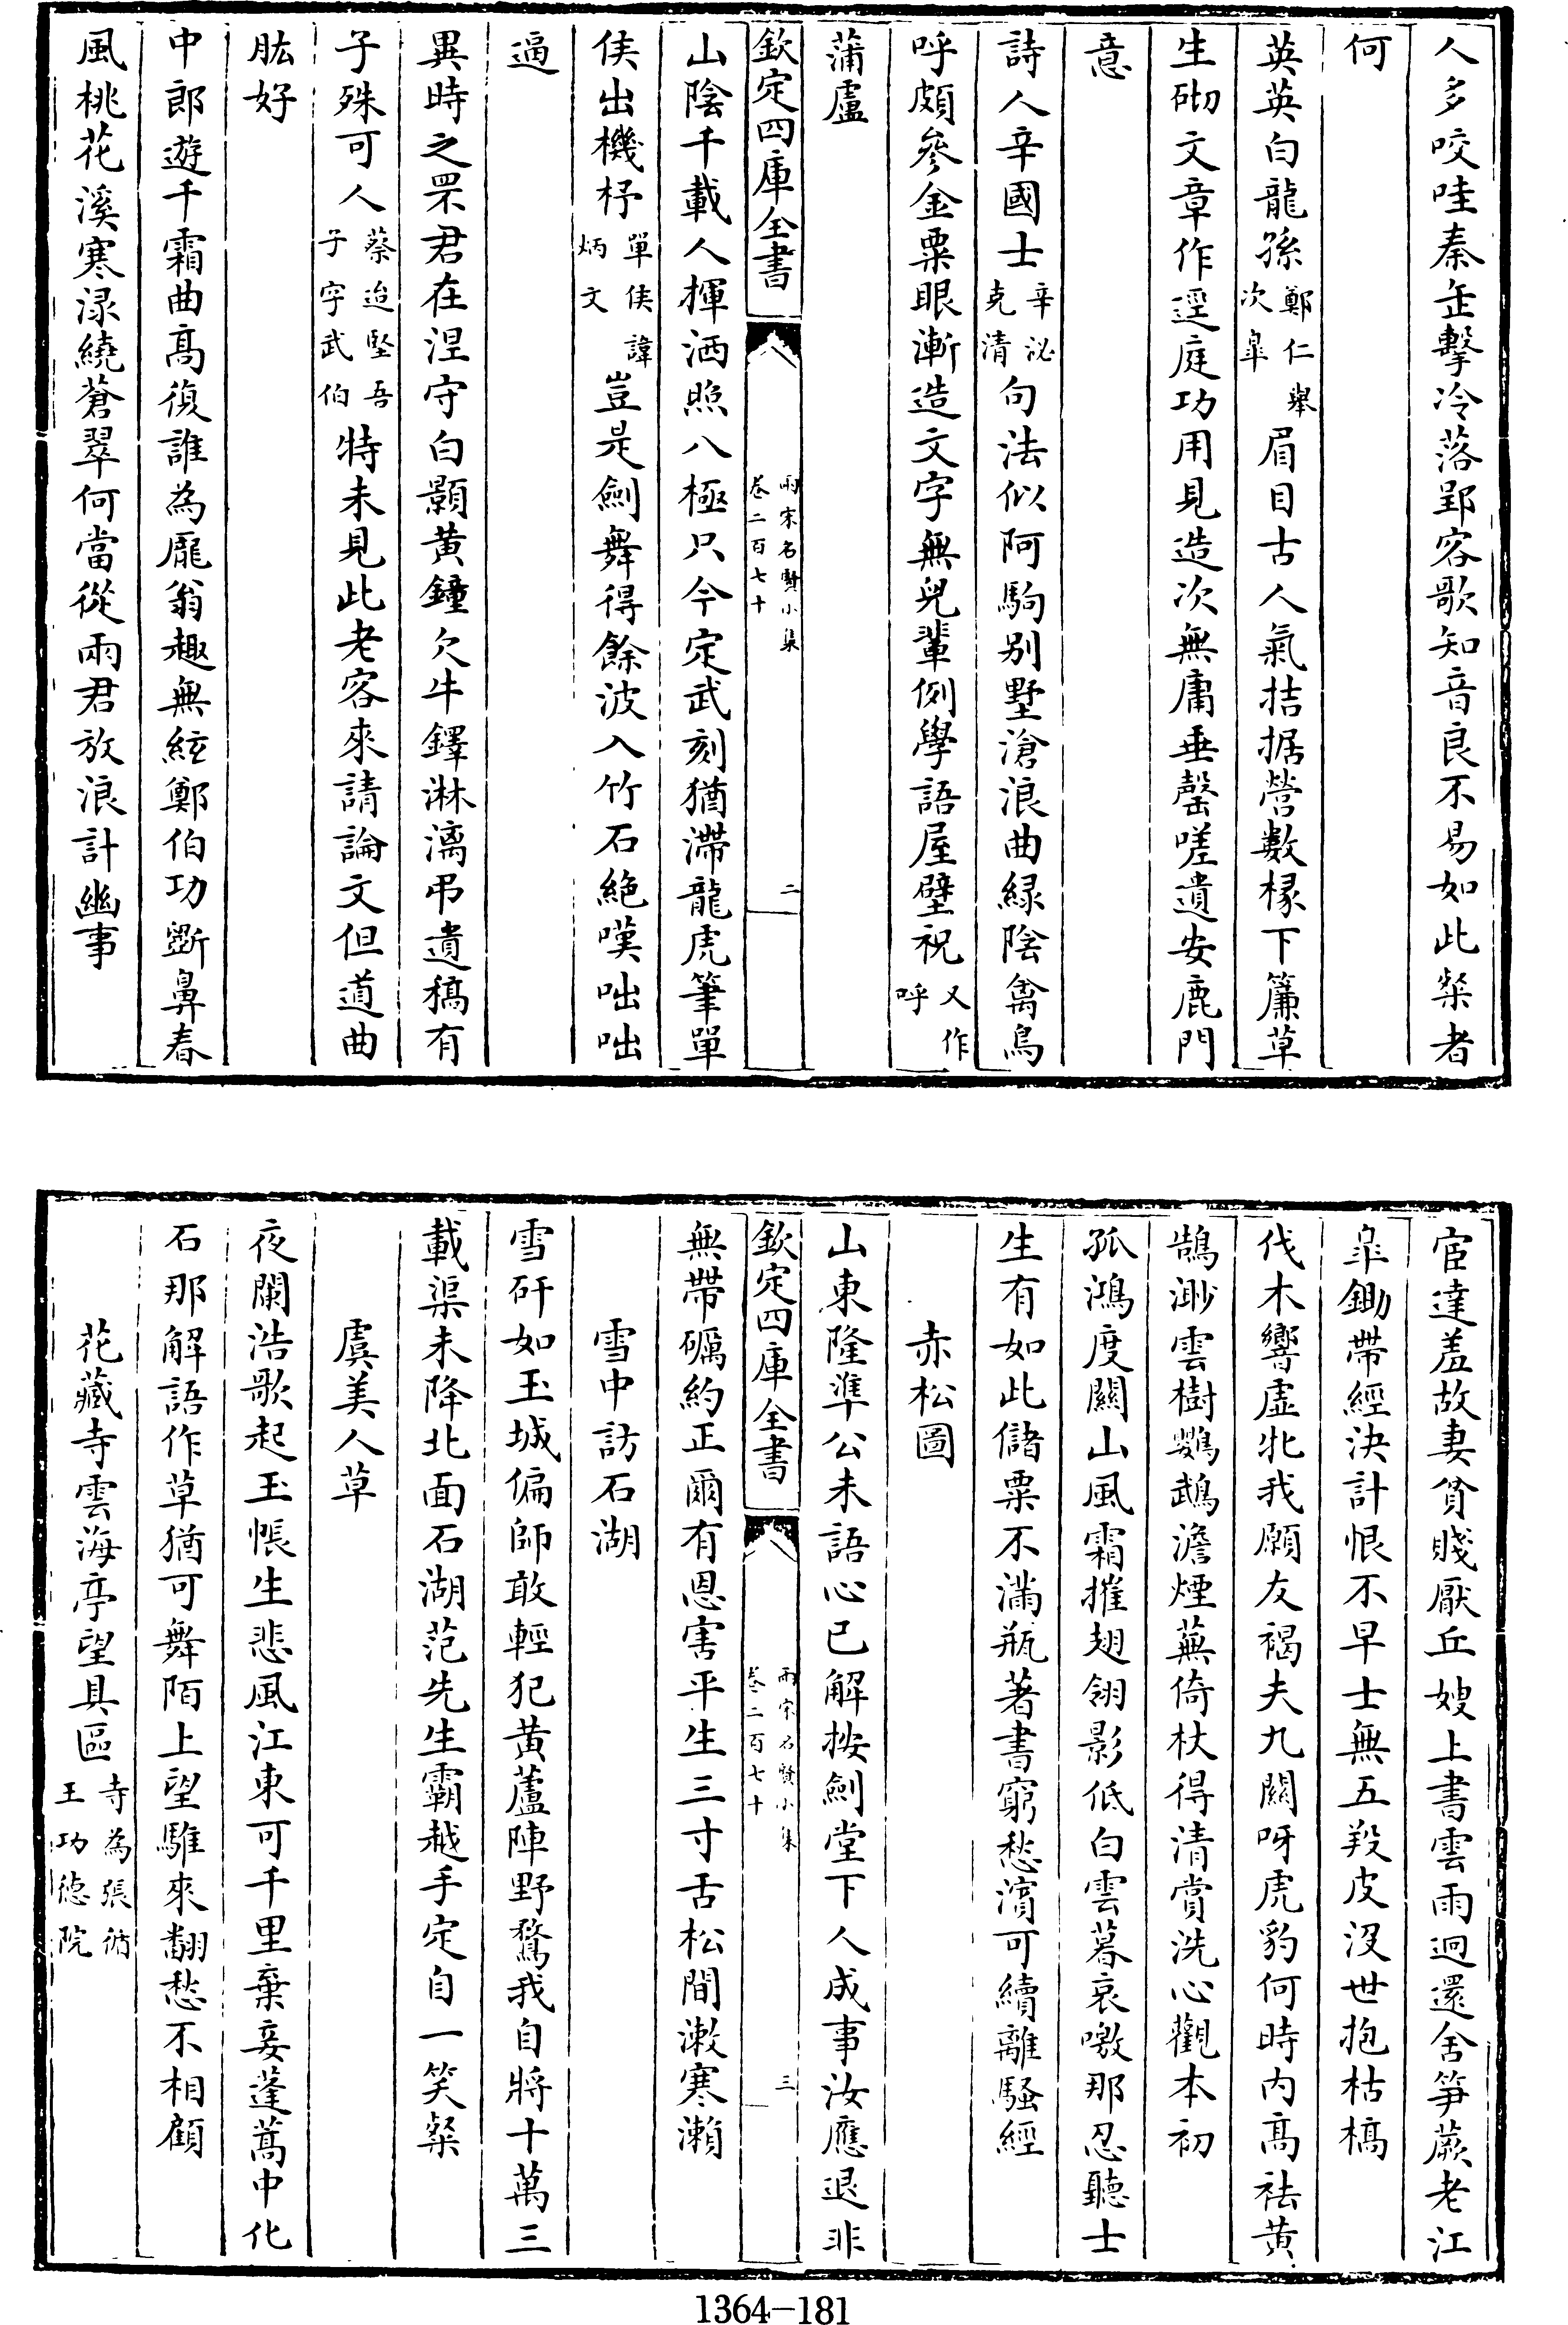 人多咬哇秦缶擊冷落郢客歌知音良不易如此粲者
何
英英白龍孫鄭仁舉次臯眉目古人氣拮据營數椽下簾草
生砌文章作逕庭功用見造次無庸垂罄嗟遺安鹿門
意
詩人辛國士辛泌克清句法似阿駒别墅滄浪曲緑陰禽鳥
呼頗參金粟眼漸造文字無兒輩例學語屋壁祝又作呼
蒲盧
欽定四庫全書
兩宋名賢小集
卷二百七十
二
山陰千載人揮洒照八極只今定武刻猶滯龍虎筆單
侯出機杼單侯諱炳文豈是劍舞得餘波入竹石絶嘆咄咄
逼
異時之罘君在涅守白顥黄鐘欠牛鐸淋漓弔遺稿有
子殊可人蔡迨堅吾子字武伯特未見此老客來請論文但道曲
肱好
中郎遊千霜曲高復誰為龐翁趣無絃鄭伯功斲鼻春
風桃花溪寒渌繞蒼翠何當從兩君放浪計幽事
宦達羞故妻貧賤厭丘嫂上書雲雨迥還舍笋蕨老江
臯鋤帶經決計恨不早士無五羖皮沒世抱枯槁
伐木響虛牝我願友褐夫九關呀虎豹何時内高袪黄
鵠渺雲樹鸚鵡澹煙蕪倚杖得清賞洗心觀本初
孤鴻度關山風霜摧翅翎影低白雲暮哀噭那忍聽士
生有如此儲粟不滿瓶著書窮愁濱可續離騷經
赤松圖
山東隆準公未語心已解按劍堂下人成事汝應退非
欽定四庫全書
兩宋名賢小集
卷二百七十
三
無帶礪約正爾有恩害平生三寸舌松間漱寒瀨
雪中訪石湖
雪矸如玉城偏師敢輕犯黄蘆陣野鶩我自將十萬三
載渠未降北面石湖范先生霸越手定自一笑粲
虞美人草
夜闌浩歌起玉帳生悲風江東可千里棄妾蓬蒿中化
石那解語作草猶可舞陌上望騅來翻愁不相顧
花藏寺雲海亭望具區寺為張循王功德院
1364-181